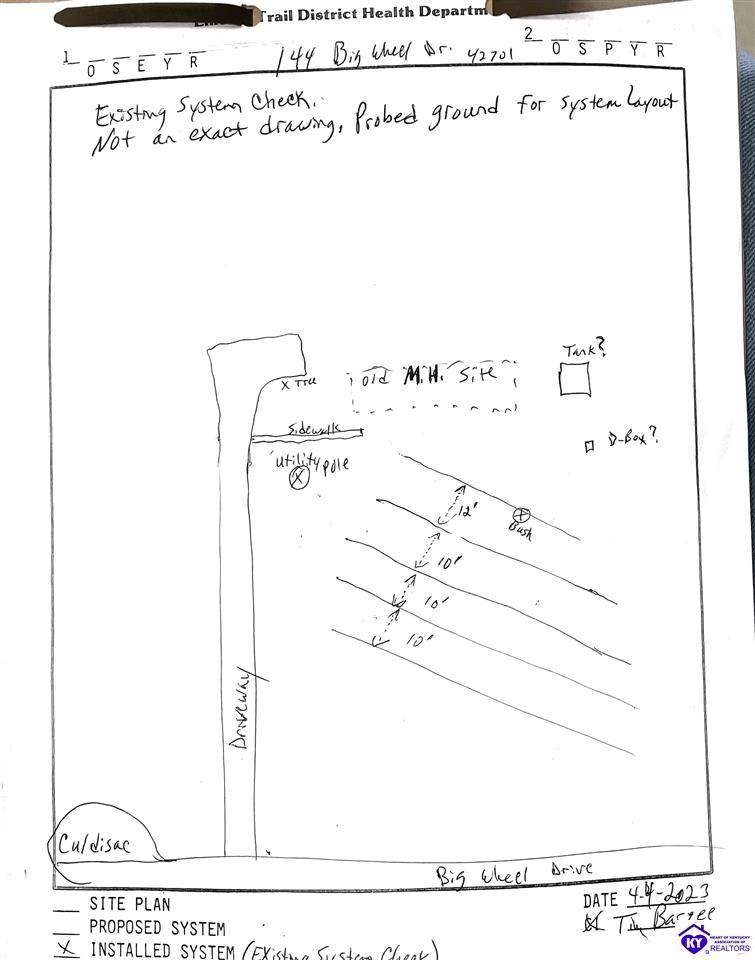 Trail District Health Departm
1 O S E Y R 144 Big Wheel Dr. 42701 2 O S P Y R
Existing System Check.
Not an exact drawing, Probed ground for system Layout
Tank?
X Tree
old M.H. Site
Sidewalk
D-Box?
utility pole
X
12'
Bush
10'
10'
10'
Driveway
Culdisac
Big Wheel Drive
SITE PLAN
DATE 4-4-2023
PROPOSED SYSTEM
X INSTALLED SYSTEM (Existing System Check)
KY
HEART OF KENTUCKY
ASSOCIATION OF
REALTORS